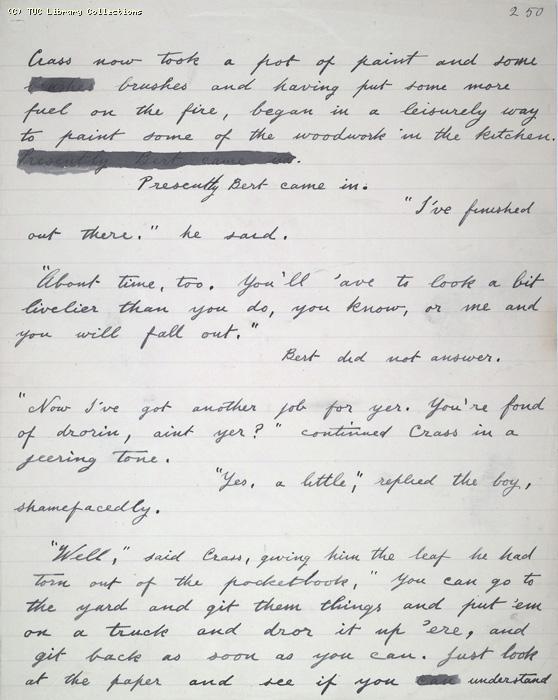 (C) TUC Library Collections
250
Crass now took a pot of paint and some
brushes and having put some more
fuel on the fire, began in a leisurely way
to paint some of the woodwork in the kitchen.
Presently Bert came in.
Presently Bert came in.
"I've finished
out there." he said.
"About time, too. You'll 'ave to look a bit
livelier than you do, you know, or me and
you will fall out."
Bert did not answer.
"Now I've got another job for yer. You're fond
of drorin, aint yer?" continued Crass in a
jeering tone.
"Yes, a little," replied the boy,
shamefacedly.
"Well," said Crass, giving him the leaf he had
torn out of the pocketbook, "You can go to
the yard and git them things and put 'em
on a truck and dror it up 'ere, and
git back as soon as you can. Just look
at the paper and see if you can understand